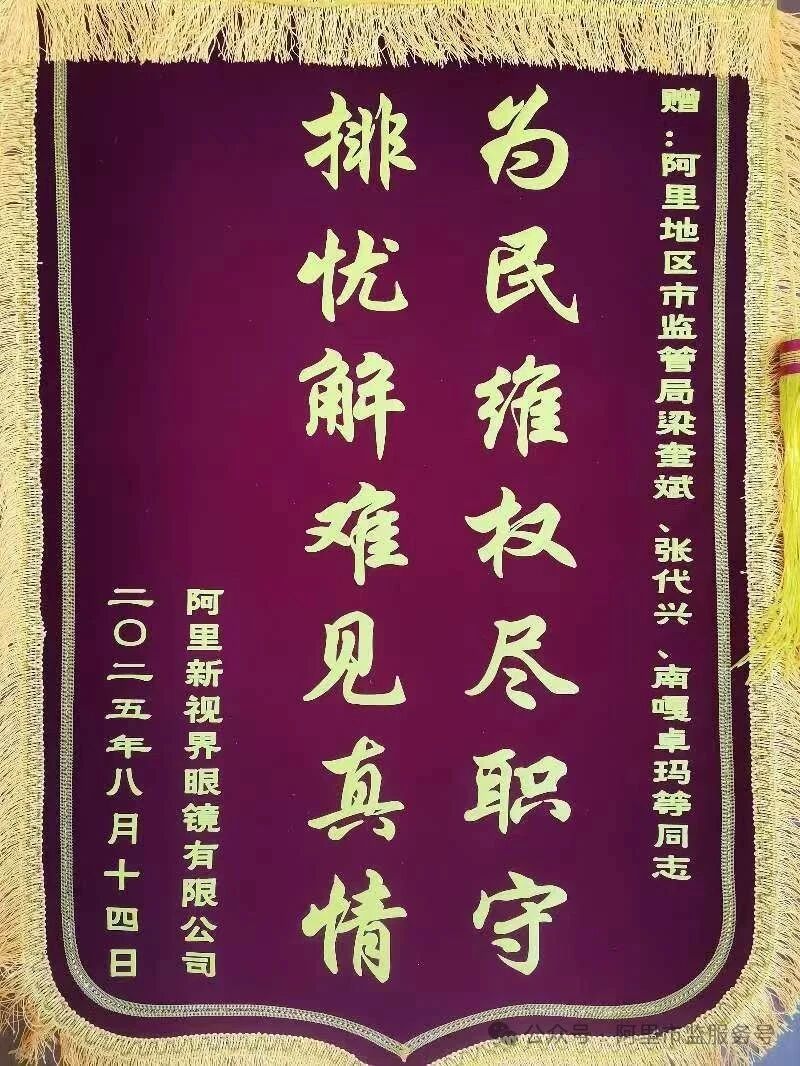 赠：阿里地区市监管局梁奎斌、张代兴、南嘎卓玛等同志
为民维权尽职守
排忧解难见真情
阿里新视界眼镜有限公司
二〇二五年八月十四日
公众号·阿里市监服务号